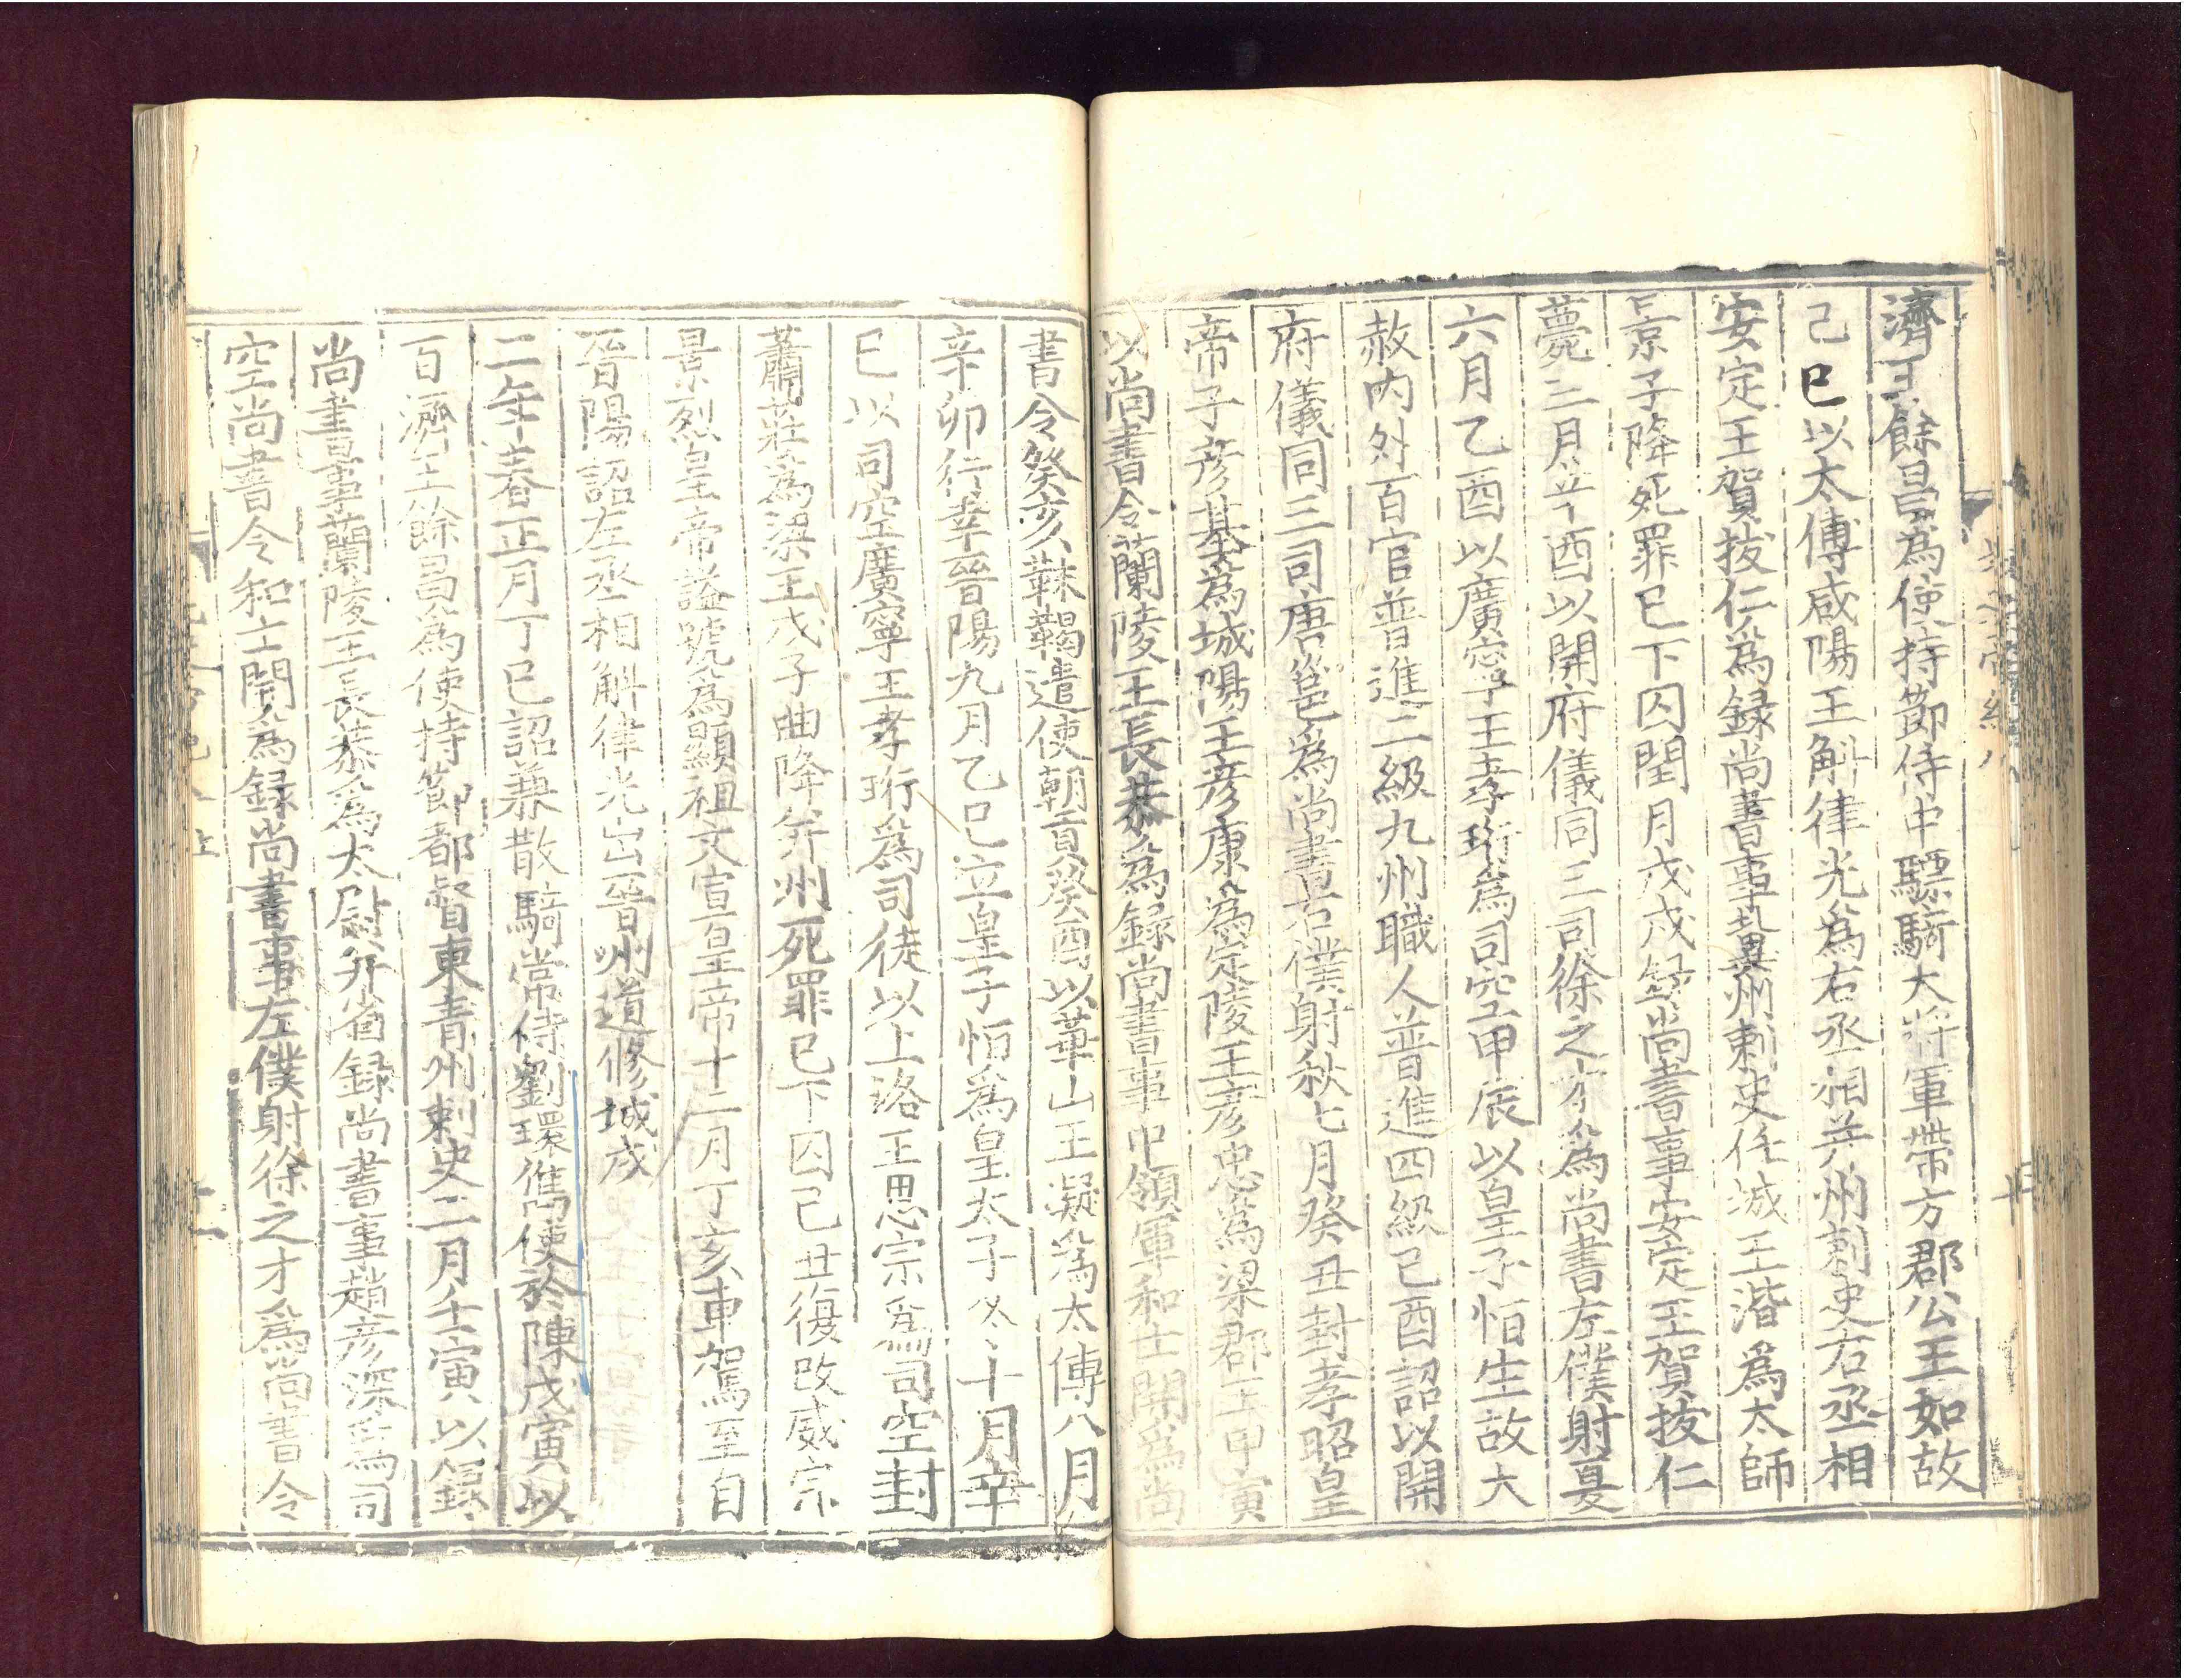 濟王餘昌爲使持節侍中驃騎大將軍帶方郡公王如故
己巳以太傅咸陽王斛律光爲右丞相并州刺史右丞相
安定王賀拔仁爲録尚書事冀州刺史任城王湝爲太師
景子降死罪已下囚閏月戊戌録尚書事安定王賀抜仁
薨三月辛酉以開府儀同三司徐之才爲尚書左僕射夏
六月乙酉以廣寧王孝珩爲司空甲辰以皇子恒生故大
赦内外百官普進二級九州職人普進四級己酉詔以開
府儀同三司唐邕爲尚書右僕射秋七月癸丑封孝昭皇
帝子彦基爲城陽王彦康爲定陵王彦忠爲梁郡王甲寅
以尚書令蘭陵王長恭爲録尚書事中領軍和士開爲尚
書令癸亥靺鞨遣使朝貢癸酉以華山王凝爲太傅八月
辛卯行幸晉陽九月乙巳立皇子恒爲皇太子冬十月辛
巳以司空廣寧王孝珩爲司徒以上洛王思宗爲司空封
蕭莊爲梁王戊子曲降并州死罪已下囚己丑復改威宗
景烈皇帝謚號爲顯祖文宣皇帝十二月丁亥車駕至自
晉陽詔左丞相斛律光出晉州道修城戍
二年春正月丁巳詔兼散騎常侍劉環儁使於陳戊寅以
百濟王餘昌爲使持節都督東青州刺史二月壬寅以録
尚書事蘭陵王長恭爲太尉并省録尚書事趙彦深爲司
空尚書令和士開爲録尚書事左僕射徐之才爲尚書令